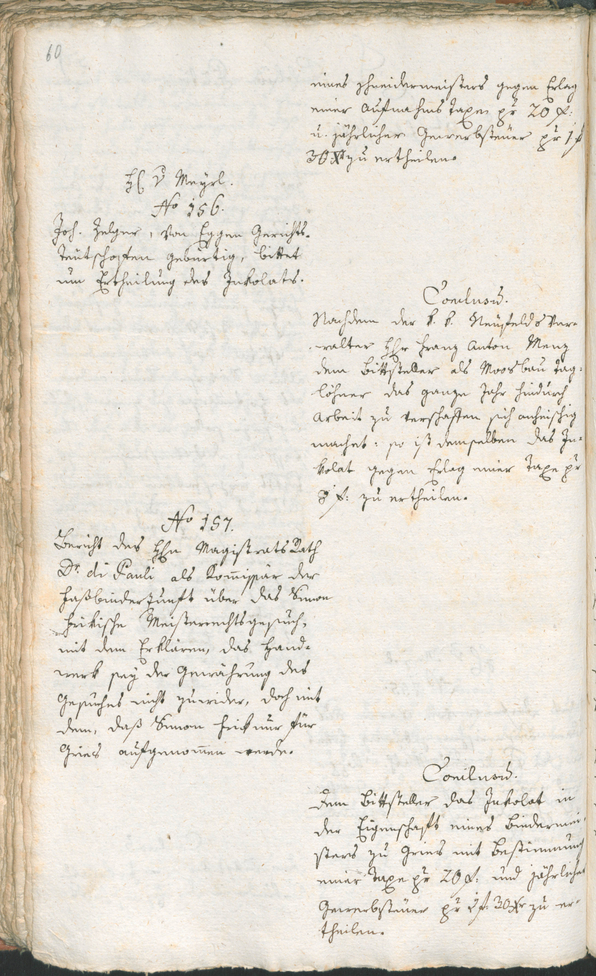 60
eines Schneidermeisters gegen Erlag
einer Aufnahms Taxe pr 20 f.
u. jährlicher Gewerbsteuer pr 1 f
30 X zu ertheilen.
H v Mayrl.
No 156.
Joh. Zelger, von Eggen Gerichts-
Teutschofen gebürtig, bittet
um Ertheilung des Inkolats.
Conclusum.
Nachdem der k. k. Neufelds Ver-
walter Hhr Franz Anton Menz
dem Bittsteller als Moosbau Tag-
löhner das ganze Jahr hindurch
Arbeit zu verschaffen sich anheischig
machet: so ist demselben das In-
kolat gegen Erlag einer Taxe pr
8 f: zu ertheilen.
No 157.
Bericht des Hhn Magistrats Rath
Dr. di Pauli als Kommissär der
Faßbinderzunft über das Simon
Frikische Meisterrechtsgesuch,
mit dem Erklären, das Hand-
werk sey der Gewährung des
Gesuches nicht zuwider, doch mit
dem, daß Simon Frik nur für
Gries aufgenommen werde.
Conclusum.
Dem Bittsteller das Inkolat in
der Eigenschaft eines Bindermei-
sters zu Gries mit Bestimmung
einer Taxe pr 20 f. und jährlicher
Gewerbsteuer pr 1 f 30 Xr zu er-
theilen.